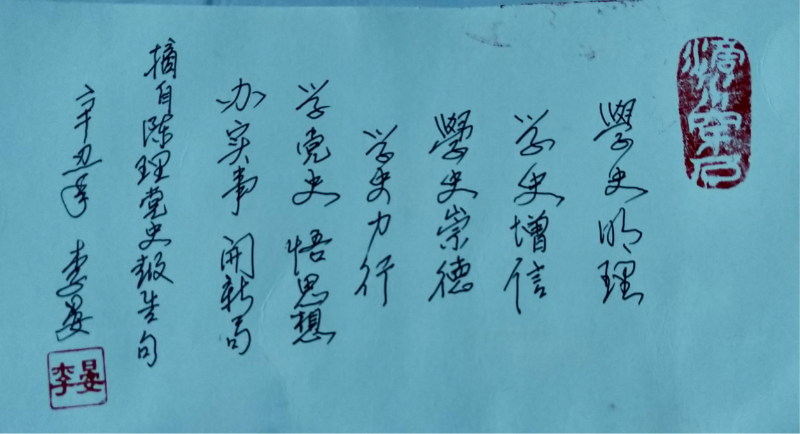 學史明理
学史增信
學史崇德
学史力行
学党史 悟思想
办实事 开新局
摘自陈理党史报告句
辛丑年 李晏
李晏